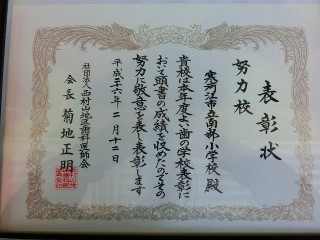 表彰状
努力校
寒河江市立南部小学校 殿
貴校は本年度よい歯の学校表彰に
おいて頭書の成績を収めたのでその
努力に敬意を表し表彰します
平成二十六年 二月十二日
社団法人西村山地区歯科医師会
会長 菊地正明